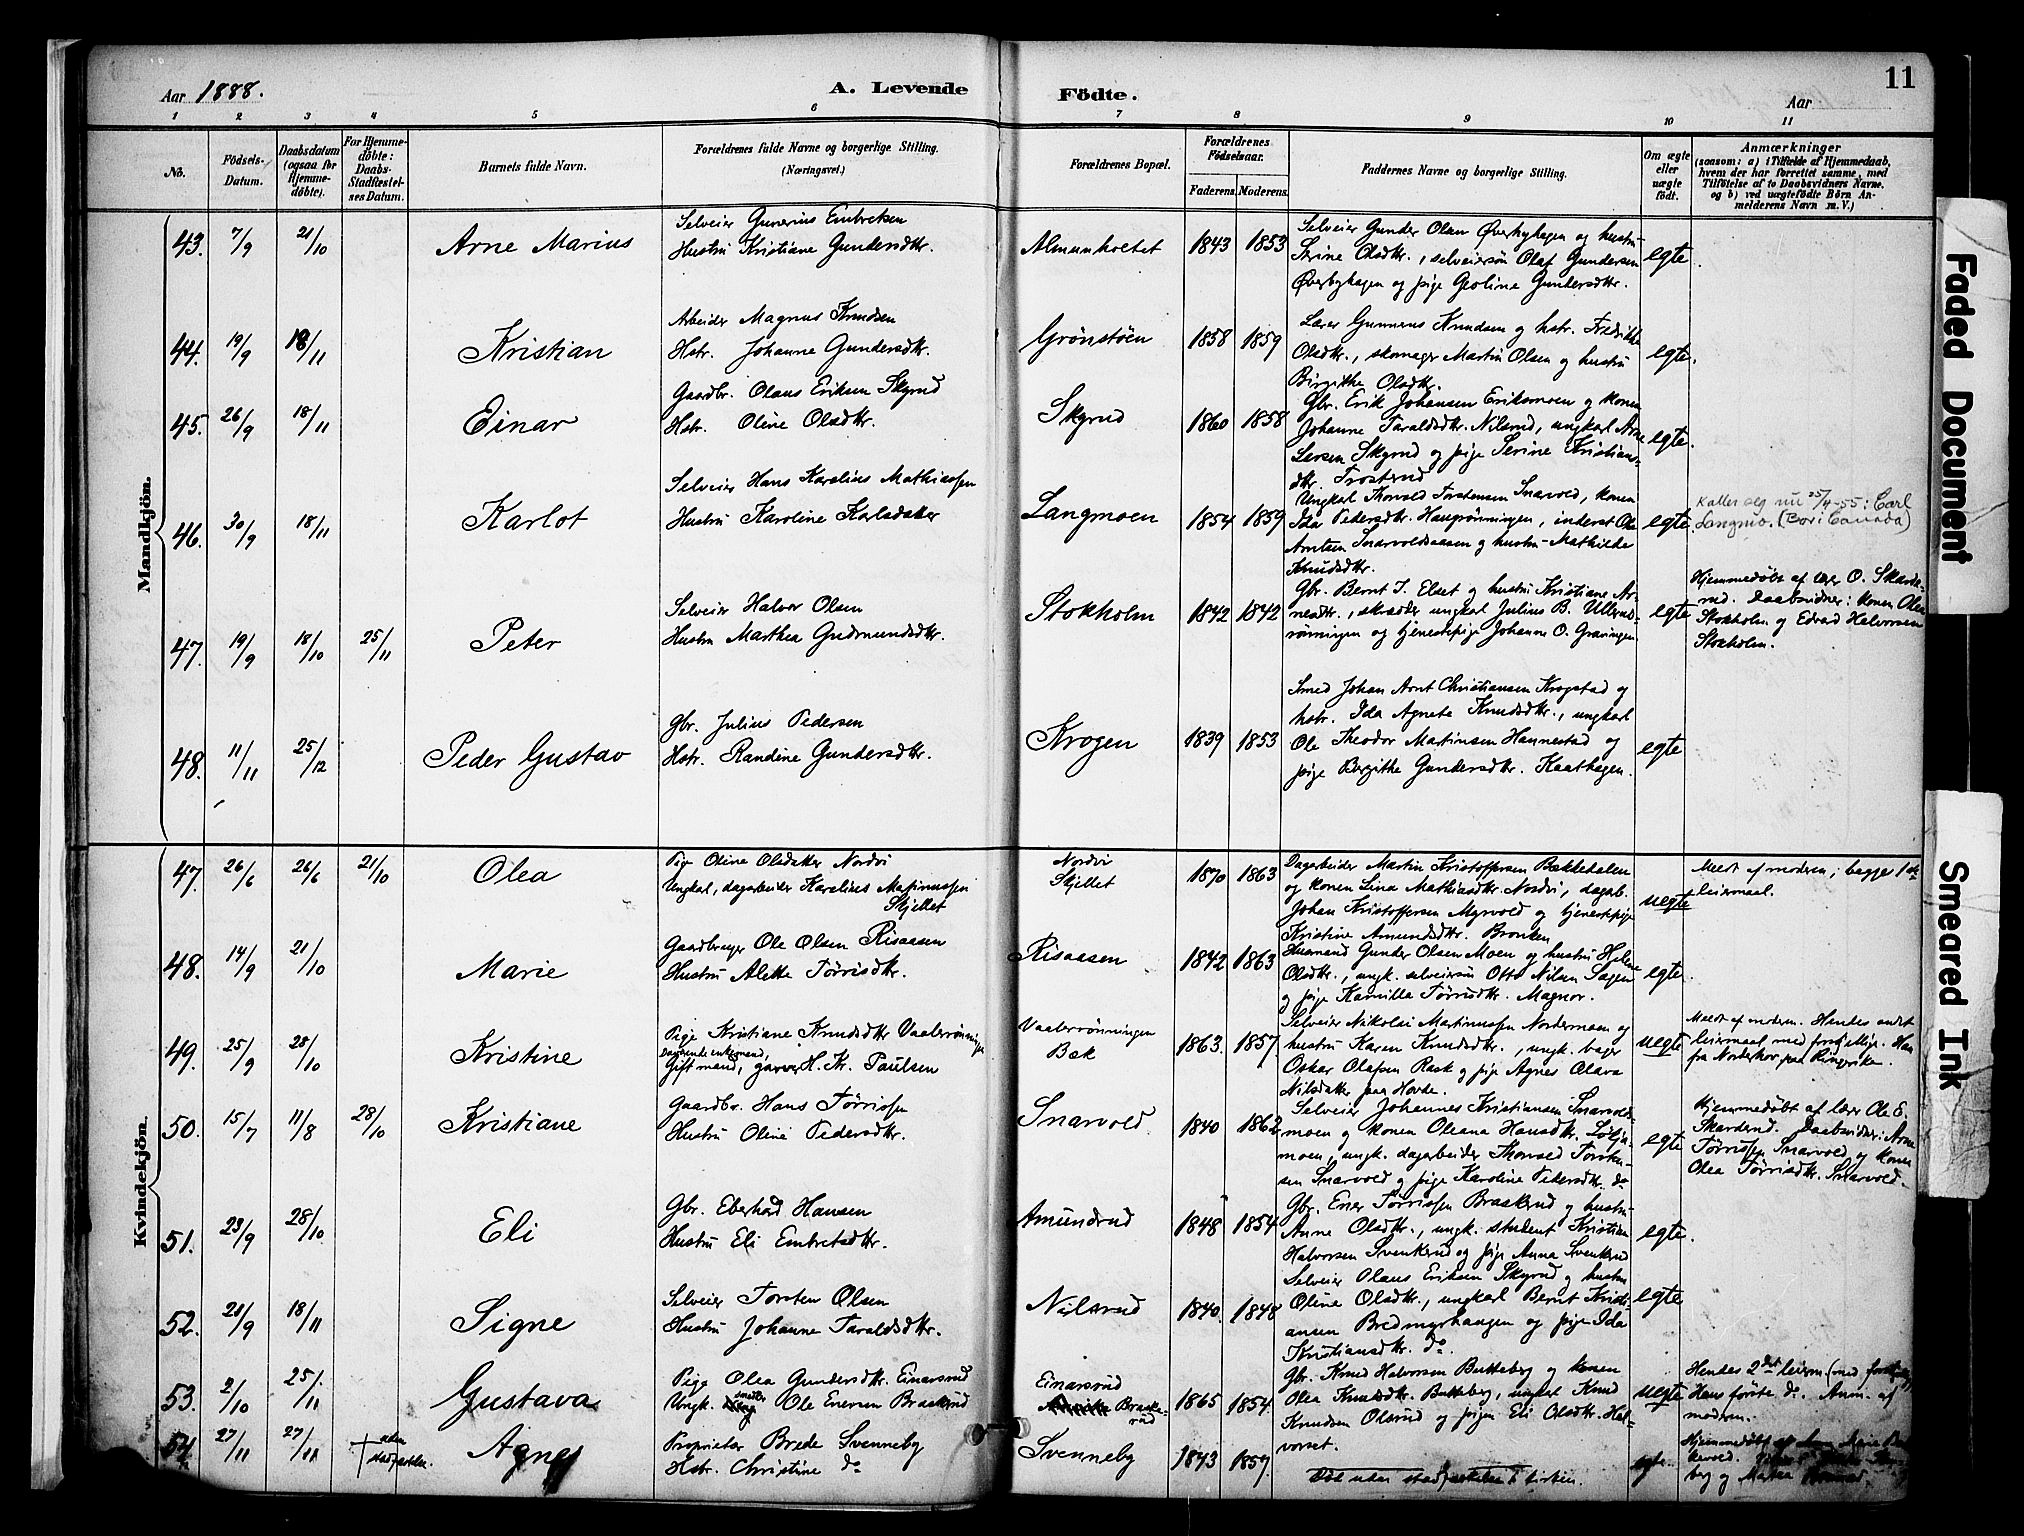 Aar 1888.
A. Levende
Födte.
Aar
11
1 2 3 4 5 6 7 8 9 10 11
No.
Födsels-Datum.
Daabsdatum (ogsaa for Hjemme-döbte).
For Hjemme-döbte: Daabs-Stadfæstel-ses Datum.
Barnets fulde Navn.
Forældrenes fulde Navne og borgerlige Stilling. (Næringsvei.)
Forældrenes Bopæl.
Forældrenes Födselsaar.
Faderens. Moderens.
Faddernes Navne og borgerlige Stilling.
Om ægte eller uægte födt.
Anmærkninger
(saasom: a) i Tilfælde af Hjemmedaab,
hvem der har forrettet samme, med
Tilföielse af to Daabsvidners Navne.
og b) ved uægtefödte Börn An-
melderens Navn m. V.)
Mandkjön.
43. 7/9 21/10 Arne Marius
Selveier Gunerius Embretsen
Hustru Kristiane Gundersdtr.
Almunholtet 1843 1853
Selveier Gunder Olsen Øverbyhagen og hustru
Serine Olsdtr., selveiersøn Olaf Gundersen
Øverbyhagen og pige Geoline Gundersdtr.
egte.
44. 19/9 18/11 Kristian
Arbeider Magnus Knudsen
Hstr. Johanne Gundersdtr.
Grønstøen 1858 1859
Lærer Gunnerus Knudsen og hstr. Fredrikke
Olsdtr., skomager Martin Olsen og hustru
Birgithe Olsdtr.
egte.
45. 26/9 18/11 Einar
Gaardbr. Olaus Eriksen Skyrud
Hstr. Oline Olsdtr.
Skyrud 1860 1858
Gbr. Erik Johansen Eriksmoen og konen
Johanne Taraldsdtr. Nilsrud, ungkarl Arne
Larsen Skyrud og pige Serine Kristians-
dtr. Trosterud
egte.
46. 30/9 18/11 Karlot
Selveier Hans Karelius Mathiassen
Hustru Karoline Karlsdatter
Langmoen 1854 1859
Ungkarl Thorvald Torstensen Snarvold, konen
Ida Pedersdtr. Haugrønningen, inderst Ole
Arntsen Snarvoldsaasen og hustru Mathilde
Knudsdtr.
egte.
Kaller seg nu 25/4-55: Carl
Langmo. (Bor i Canada)
47. 19/9 18/10 25/11 Peter
Selveier Halvor Olsen
Hustru Marthea Gudmundsdtr.
Stokholm 1842 1842
Gbr. Bernt I. Elset og hustru Kristiane Ar-
nesdtr., skrædder ungkarl Julius B. Ullerud-
rønningen og tjenestepige Johanne O. Gravingen
egte
Hjemmedøbt af lærer O. Skarde-
rud. Daabsvidner: konen Olea
Stokholm og Edvard Halvorsen
Stokholm.
48. 11/11 25/12 Peder Gustav
Gbr. Julius Pedersen
Hstr. Randine Gundersdtr.
Krogen 1839 1853
Smed Johan Arnt Christiansen Krogstad og
hstr. Ida Agnete Knudsdtr., ungkarl
Ole Theodor Martinsen Hannestad og
pige Birgithe Gundersdtr. Kaathagen.
egte
Kvindekjön.
47. 26/6 26/6 21/10 Olea
Pige Oline Olsdatter Nordvi
Ungkarl, dagarbeider Karelius Masinussen
Skjellet
Nordvi
Skjellet
1870 1863
Dagarbeider Martin Kristoffersen Bakkedalen
og konen Lina Mathiasdtr. Nordvi, dagarb.
Johan Kristoffersen Myrvold og tjenestepige
Kristine Amundsdtr. Bronken
uegte
Meldt af moderen; begges 1ste
leiermaal.
48. 14/9 21/10 Marie
Gaardbruger Ole Olsen Risaasen
Hustru Alette Tørrisdtr.
Risaasen 1842 1863
Husmand Gunder Olsen Moen og hustru Helene
Olsdtr., ungk. selveiersøn Otto Nilsen Sagen
og pige Kamilla Tørrisdtr. Magnor.
egte.
49. 25/9 28/10 Kristine
Pige Kristiane Knudsdtr Vaalerrønningen
Gift mand, garver H. Kr. Paulsen
Vaalerrønningen
Bæk
1863. 1857.
Selveier Nikolai Martinussen Nordermoen og
hustru Karen Knudsdtr., ungk. bager
Oskar Olafsen Rask og pige Agnes Olava
Nilsdatter paa Hovde.
uegte
Meldt af moderen. Hendes andet
leiermaal med forskjellige. Han
fra Norderhov paa Ringerike.
50. 15/7 11/8 28/10 Kristiane
Gaardbr. Hans Tørrissen
Hustru Oline Pedersdtr.
Snarvold. 1840 1862
Selveier Johannes Kristiansen Snarvolds-
moen og konen Oleana Hansdtr. Løljn-
moen, ungk. dagarbeider Thorvald Torsten-
sen Snarvold og pige Karoline Pedersdtr. do
egte
Hjemmedøbt af lærer Ole E.
Skarderud. Daabsvidner: Arne
Tørrissen Snarvold og konen
Olea Tørrisdtr. Snarvold.
51. 23/9 28/10 Eli
Gbr. Eberhard Hansen
Hustru Eli Embretsdtr.
Amundrud 1848 1854
Gbr. Ener Tørrissen Braskerud og hustru
Anne Olsdtr., ungk. student Kristian
Halvorsen Svenkerud og pige Anna Svenkerud
egte.
52. 21/9 18/11 Signe
Selveier Torsten Olsen
Hustru Johanne Taraldsdtr.
Nilsrud 1840. 1848
Selveier Olaus Eriksen Skyrud og hustru
Oline Olsdtr., ungkarl Bernt Kristi-
ansen Bredmyrhaugen og pige Ida
Kristiansdtr. do.
egte
53. 2/10 25/11 Gustava
Pige Olea Gundersdtr. Einarsrud
Ungk. Ole Enersen Braskerud
Einarsrud
Braske-
rud
1865 1854.
Gbr. Knud Halvorsen Butteberg og konen
Olea Knudsdtr. Butteberg, ungkarl Knud
Knudsen Olsrud og pigen Eli Olsdtr. Hal-
vorset.
uegte
Hendes 2det leierm (med forskjellige)
Hans første do. Anm. af
moderen.
54. 27/11 27/11 † uden stadfæstelse. Agnes
Proprietær Brede Svenneby
Hstr. Christine do
Svenneby 1843 1859.
Død uden stadfæstelse i kirken.
egte.
Hjemmedøbt af
berg og Martea
Faded Document
Smeared Ink